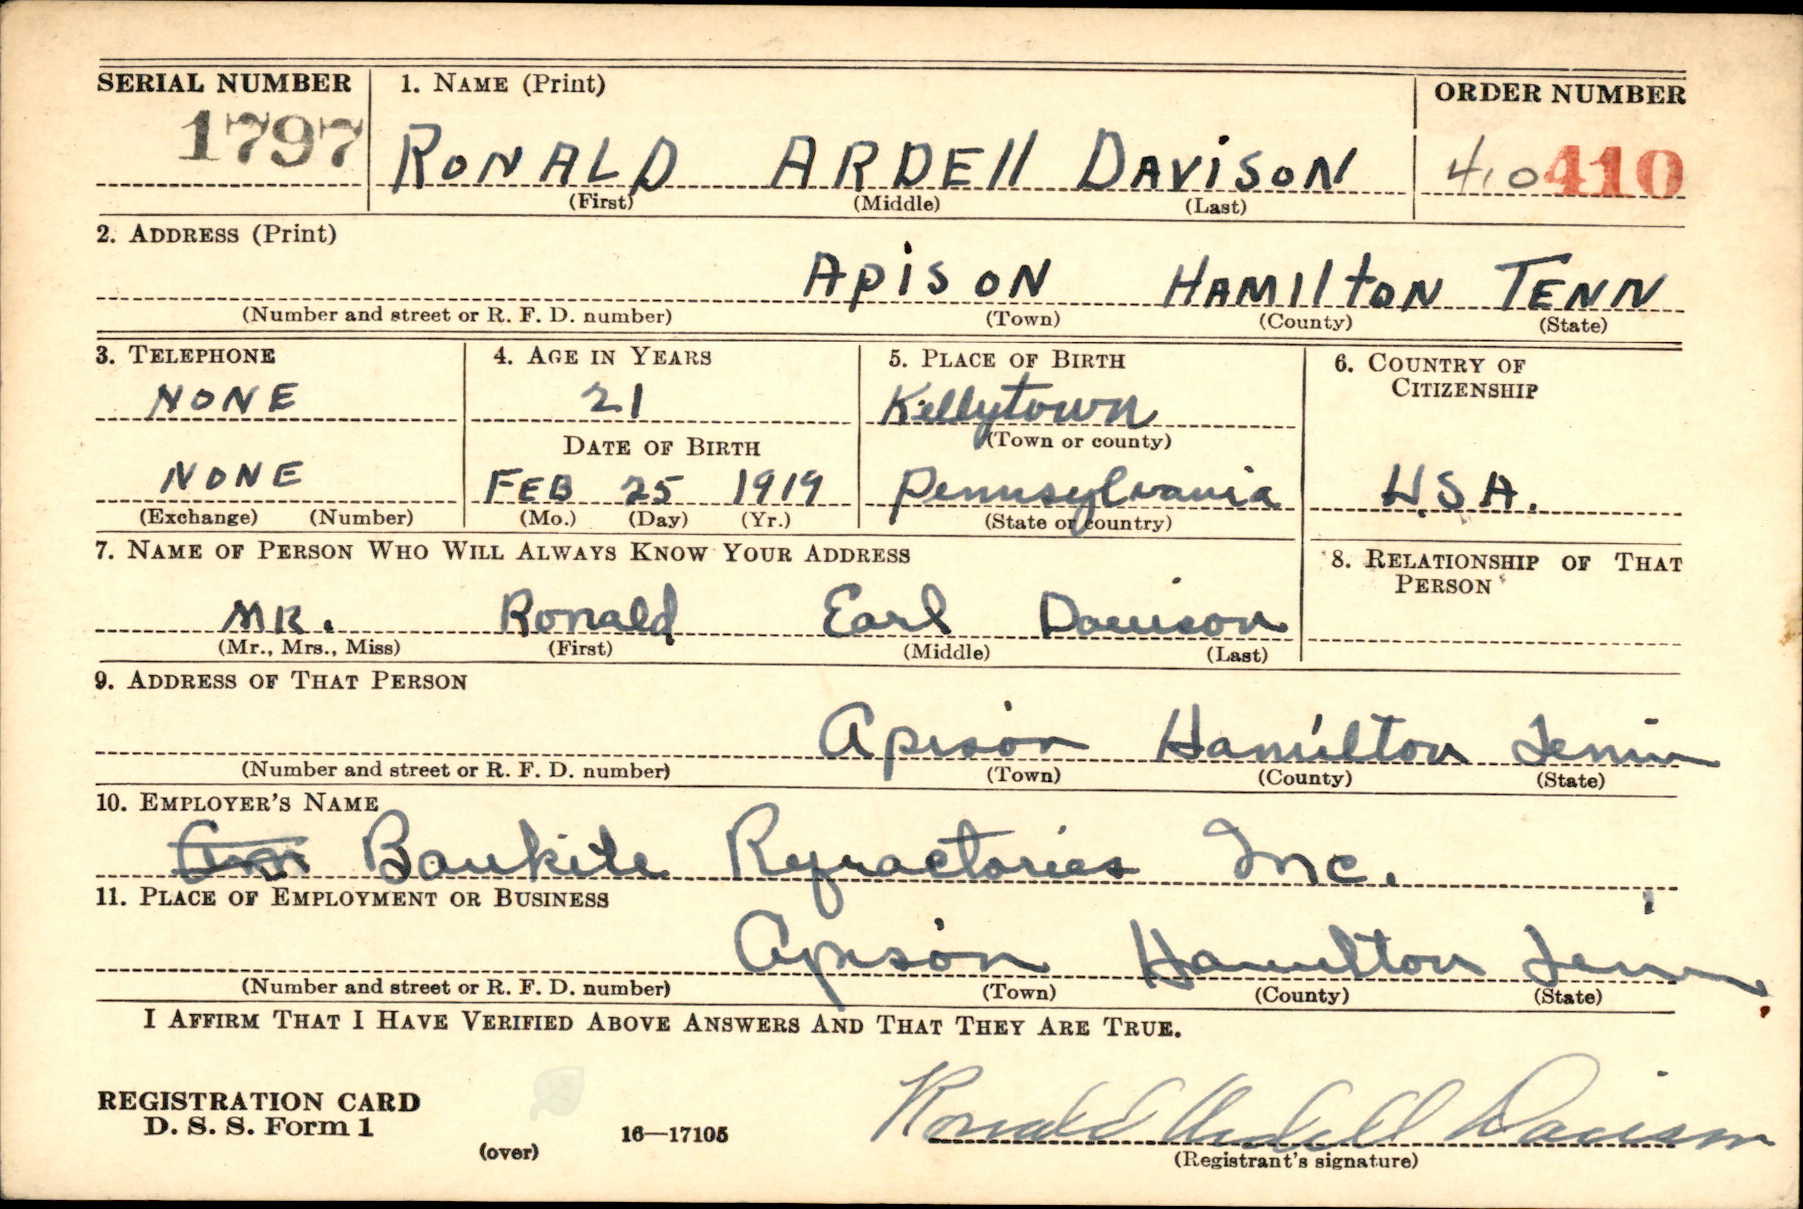 SERIAL NUMBER 1. NAME (Print) ORDER NUMBER
1797 RONALD ARDEll DAViSON 410 410
(First) (Middle) (Last)
2. ADDRESS (Print)
APiSON HAMIltON TENN
(Number and street or R. F. D. number) (Town) (County) (State)
3. TELEPHONE 4. AGE IN YEARS 5. PLACE OF BIRTH 6. COUNTRY OF CITIZENSHIP
NONE 21 Kellytown
DATE OF BIRTH (Town or county)
NONE FEB 25 1919 Pennsylvania U.S.A.
(Exchange) (Number) (Mo.) (Day) (Yr.) (State or country)
7. NAME OF PERSON WHO WILL ALWAYS KNOW YOUR ADDRESS 8. RELATIONSHIP OF THAT PERSON
MR. Ronald Earl Davison
(Mr., Mrs., Miss) (First) (Middle) (Last)
9. ADDRESS OF THAT PERSON
Apison Hamilton Tenn
(Number and street or R. F. D. number) (Town) (County) (State)
10. EMPLOYER'S NAME
Baukite Refractories Inc.
11. PLACE OF EMPLOYMENT OR BUSINESS
Apison Hamilton Tenn.
(Number and street or R. F. D. number) (Town) (County) (State)
I AFFIRM THAT I HAVE VERIFIED ABOVE ANSWERS AND THAT THEY ARE TRUE.
REGISTRATION CARD
D. S. S. Form 1
(over) 16—17105 Ronald Ardell Davison
(Registrant's signature)